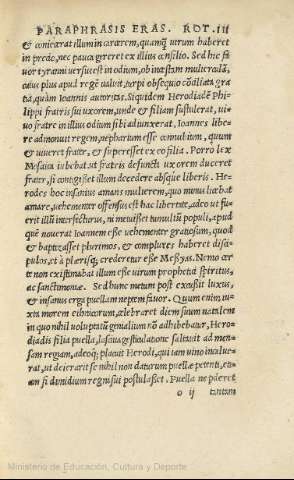 PARAPHRASIS ERAS. ROT. III
& coniecerat illum in carcerem, quamq̃ uirum haberet
in precio, nec pauca gereret ex illius consilio. Sed hic fa
uor tyranni uersus est in odium, ob incestam mulierculã,
cuius plus apud regẽ ualuit, turpi obsequio cõciliata gra
tia, quàm Ioannis autoritas. Siquidem Herodiadẽ Phi
lippi fratris sui uxorem, unde & filiam sustulerat, ui-
uo fratre in illius odium sibi adiunxerat, Ioannes libe-
re admonuit regem, nepharium esse connubium, quum
& uiueret frater, & superesset ex eo filia. Porro lex
Mosaica iubebat ut fratris defuncti uxorem duceret
frater, si contigisset illum decedere absque liberis. He-
rodes hoc insanius amans mulierem, quo minus licebat
amare, uehementer offensus est hac libertate, adeo ut fu-
erit illũ interfecturus, ni metuisset tumultũ populi, apud
quẽ nouerat Ioannem esse uehementer gratiosum, quod
& baptizasset plurimos, & complures haberet disci-
pulos, et à plerisq; crederetur esse Messyas. Nemo cer
te non existimabat illum esse uirum prophetici spiritus,
ac sanctimoniæ. Sed hunc metum post excussit luxus,
& insanus erga puellam neptem fauor. Quum enim, iu-
xta morem ethnicorum, celebraret diem suum natalem
in quo nihil uoluptatũ genialium nõ adhibebatur, Hero
diadis filia puella, lasciua gesticulatione saltauit ad men-
sam regiam, adeoq; placuit Herodi, qui tam uino incalue-
rat, ut deierarit se nihil non daturum puellæ petenti, eti-
am si dimidium regni sui postulasset. Puella ne peteret
o ij tantum
Ministerio de Educación, Cultura y Deporte